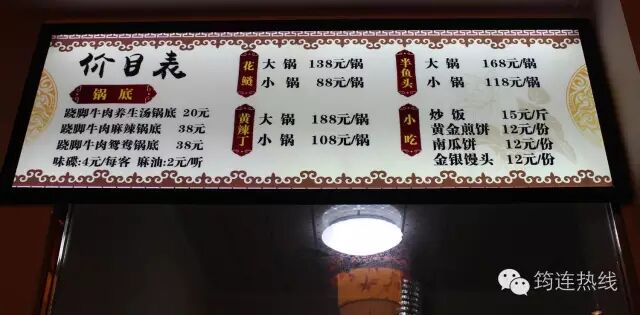 价目表
锅底
跷脚牛肉养生汤锅底 20元
跷脚牛肉麻辣锅底 38元
跷脚牛肉鸳鸯锅底 38元
味碟:4元/每客 麻油:2元/听
花鲢
大锅 138元/锅
小锅 88元/锅
黄辣丁
大锅 188元/锅
小锅 108元/锅
半鱼头
大锅 168元/锅
小锅 118元/锅
小吃
炒饭 15元/斤
黄金煎饼 12元/份
南瓜饼 12元/份
金银馒头 12元/份
筠连热线